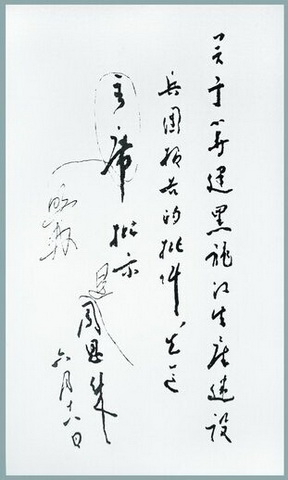 关于筹建黑龙江生产建设
兵团报告的批件，先送
主席批示
周恩来
六月十八日